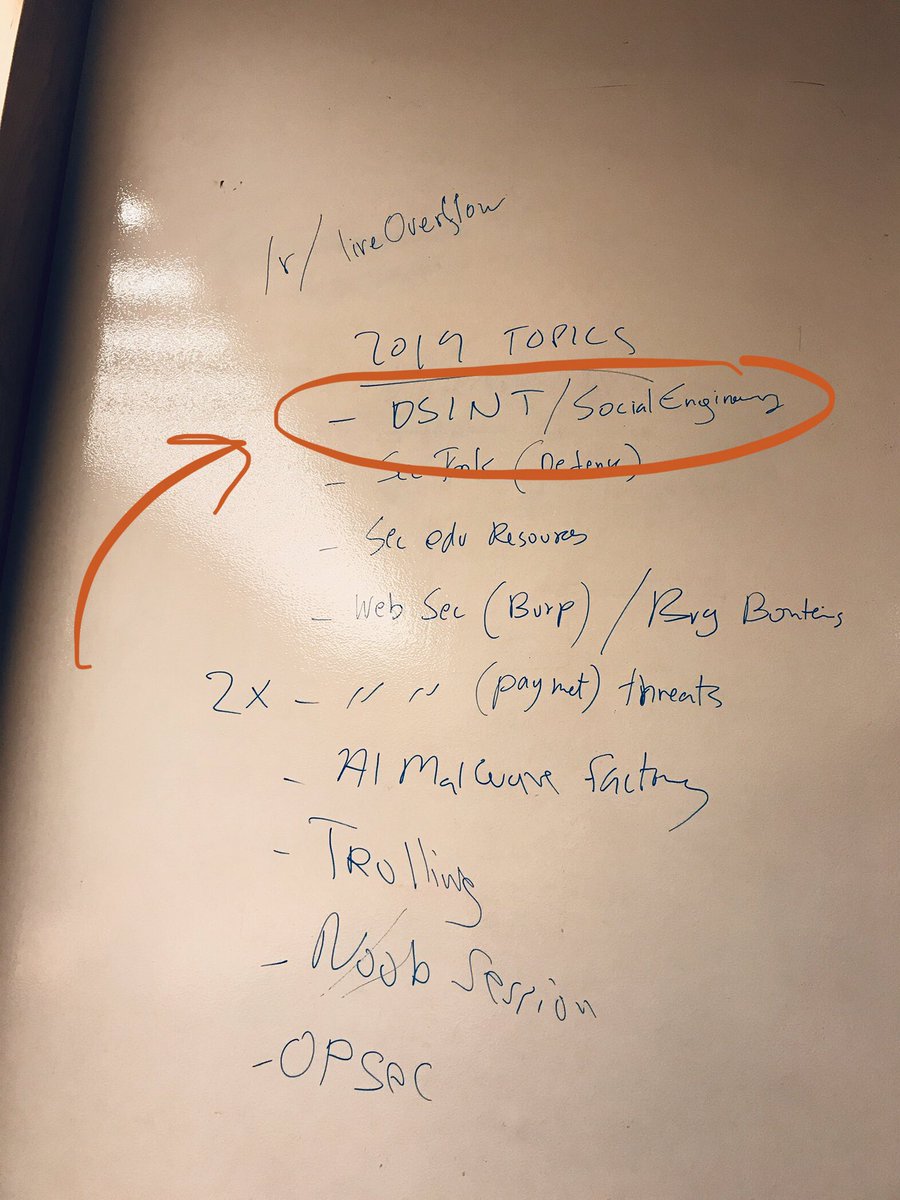 /r/ liveOverflow
2019 TOPICS
- OSINT/Social Engineering
- Sec Tools (Defense)
- Sec edu Resources
- Web Sec (Burp) / Bug Bounties
2x - " " (paymet) threats
- AI Malware factory
- Trolling
- Noob Session
- OPSec